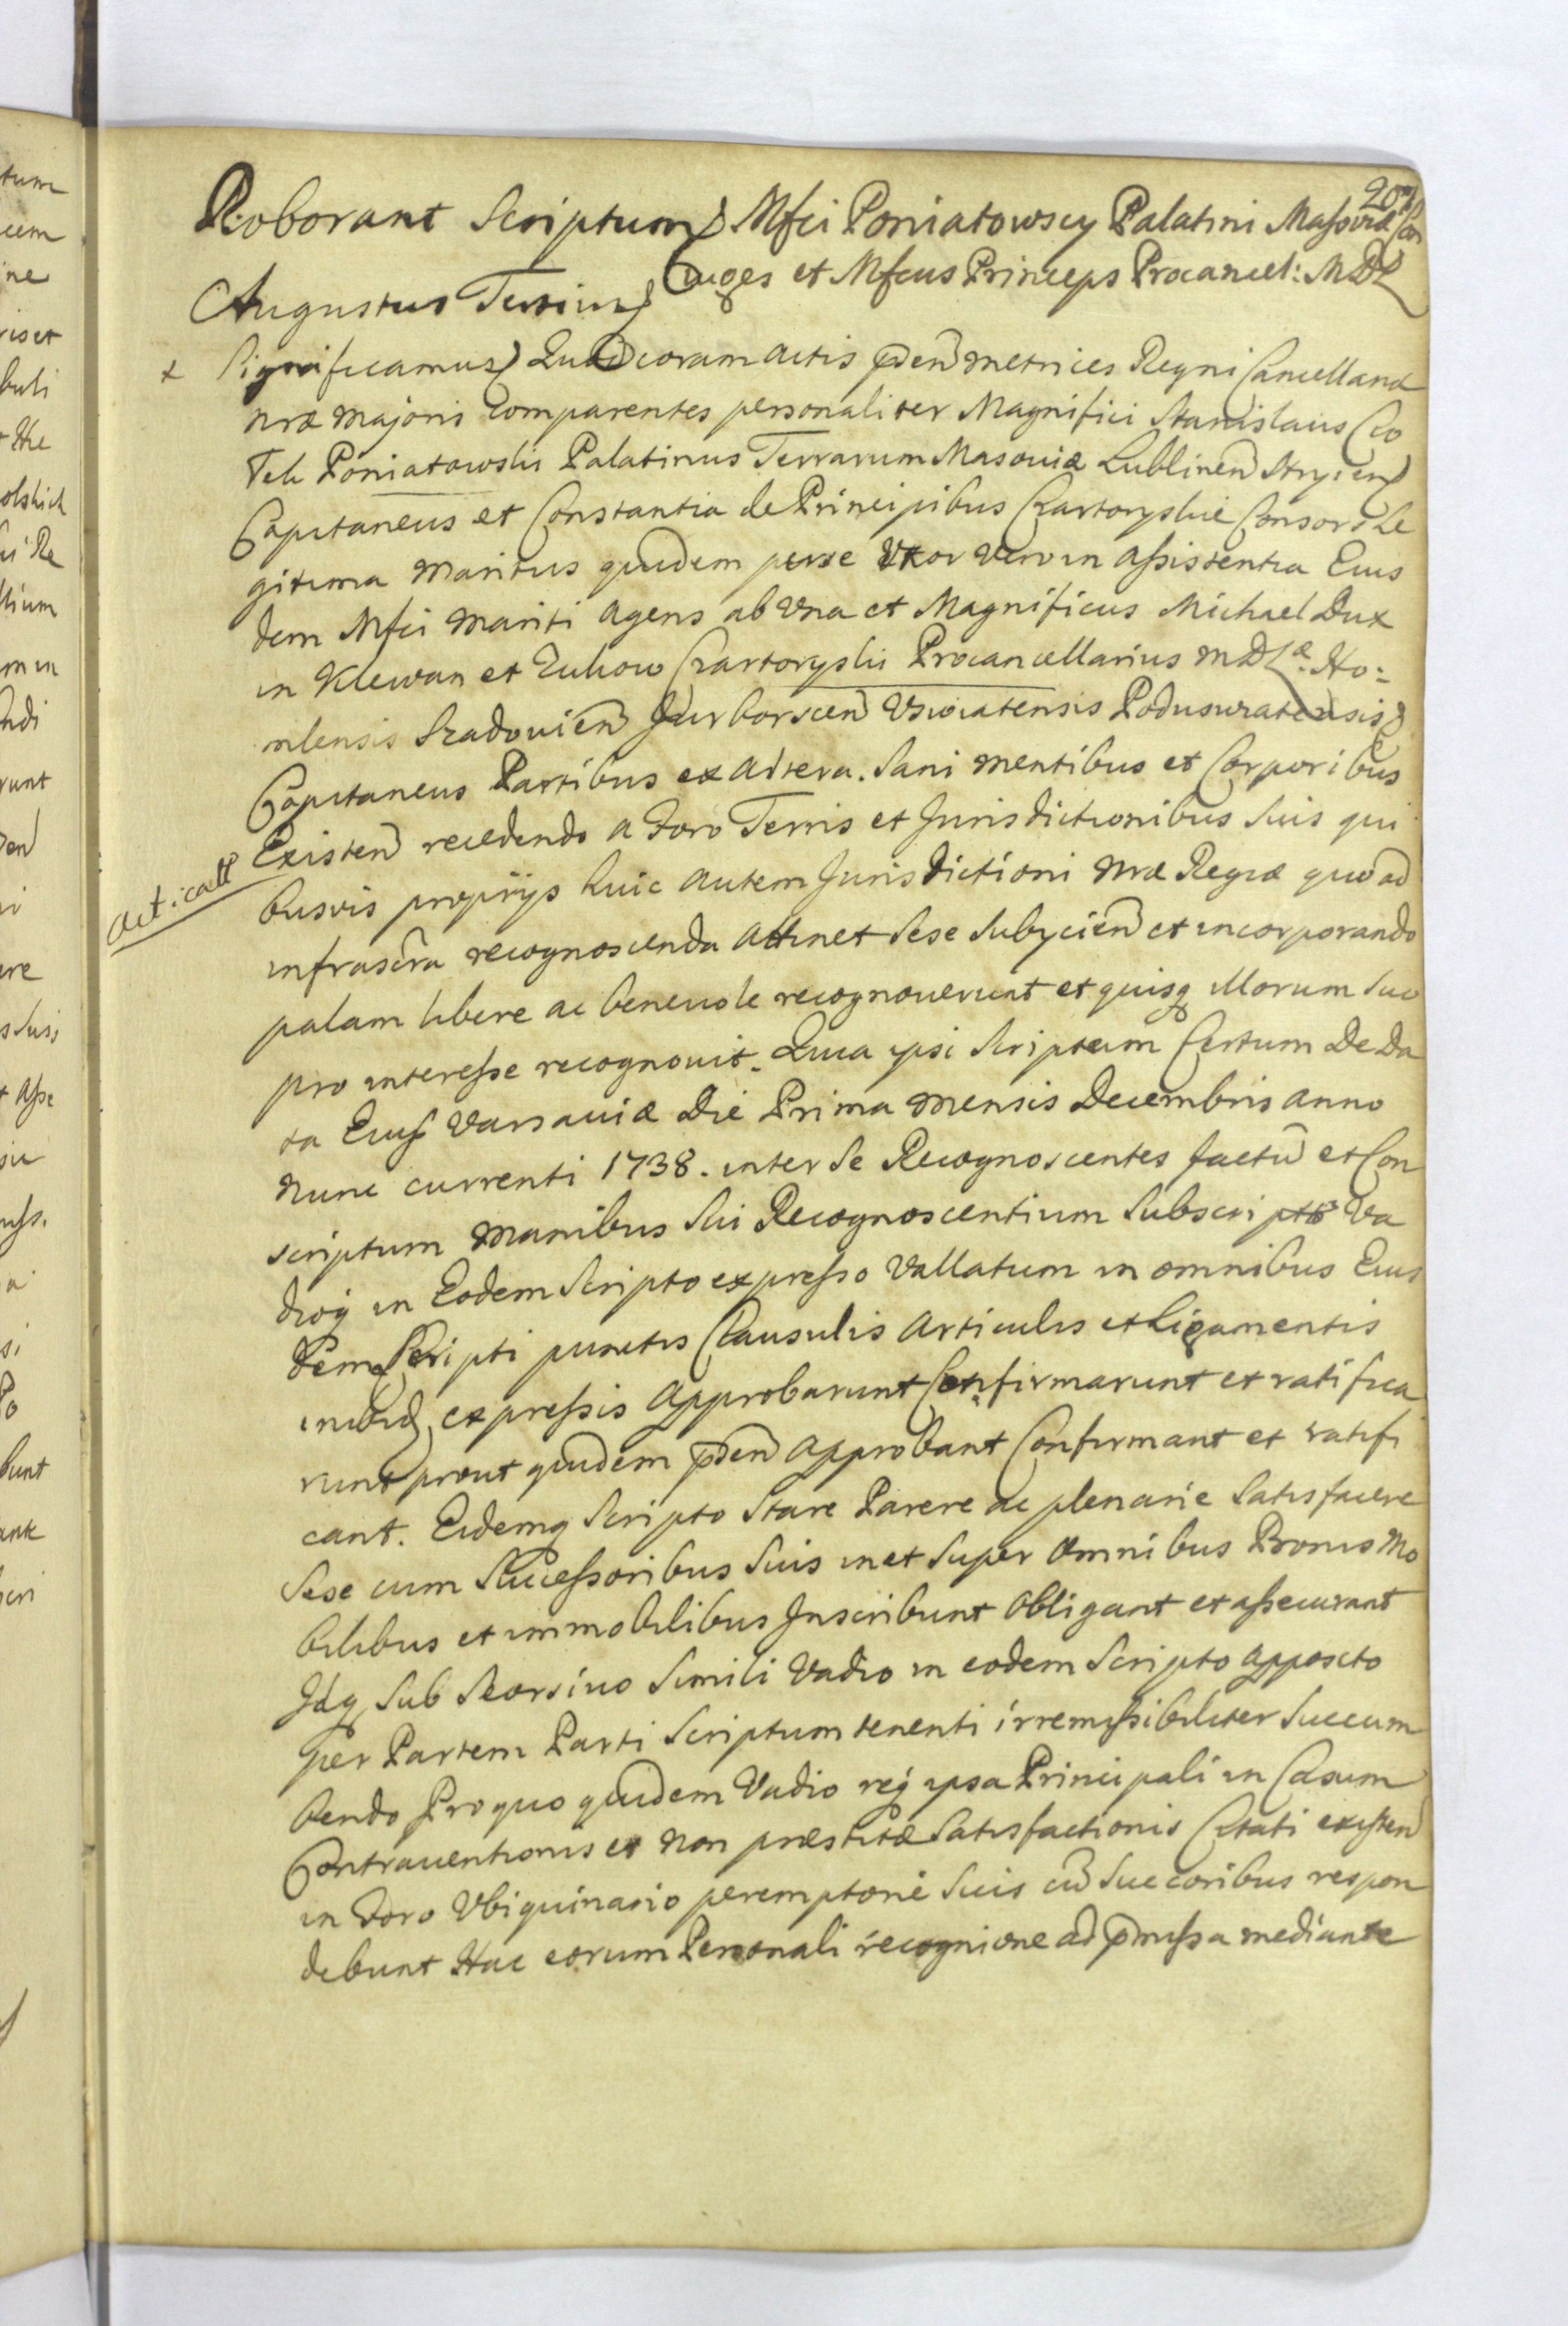 Roborant Scriptum Mfci Poniatowscy Palatini Massoviæ Con
iuges et Mfcus Princeps Procancel: MDL
Augustus Tertius
Significamus Quia coram Actis pñen Metrices Regni Cancellariæ
Nræ Majoris Comparentes personaliter Magnifici Stanislaus Cio
łek Poniatowski Palatinus Terrarum Masoviæ Lublinen Stryien
Capitaneus et Constantia de Principibus Czartoryskie Consors Le
gitima Maritus quidem per se Uxor vero in Assistentia Eius
dem Mfci Mariti Agens ab Una et Magnificus Michael Dux
in Klewan et Zukow Czartoryski Procancellarius MDLæ Ho:
mlensis Szadovien Jurborscen Uswiatensis Poduswiatensis
Capitaneus Partibus ex Altera. Sani Mentibus et Corporibus
Existen recedendo a Foro Terris et Jurisdictionibus Suis qui
busvis proprijs huic autem Jurisdictioni Nræ Regiæ quoad
infrascra recognoscenda Attinet Sese Subyicien et incorporando
palam libere ac benevole recognoverunt et quisq illorum Suo
pro interesse recognovit. Quia ipsi Scriptum Certum De Da
ta Eius Varsaviæ Die Prima Mensis Decembris Anno
Nunc currenti 1738. inter Se Recognoscentes factu et Con
scriptum Manibus Sui Recognoscentium Subscripto Va
dioq in Eodem Scripto expresso Vallatum in omnibus Eius
dem Scripti punctis Clausulis Articulis et Ligamentis
inibid expressis Approbarunt Confirmarunt et ratifica
runt prout quidem pñen Approbant Confirmant et ratifi
cant. Eidemq Scripto Stare Parere ac plenarie Satisfacere
Sese cum Successoribus Suis in et Super Omnibus Bonis Mo
bilibus et immobilibus Inscribunt Obligant et assecurant
Idq Sub Seorsivo Simili Vadio in eodem Scripto apposito
per Partem Parti Scriptum tenenti irremissibiliter Succum
bendo Pro quo quidem Vadio req ipsa Principali in Casum
Contraventionis et non præstitæ Satisfactionis Citati existen
in Foro Ubiquinario peremptorie Suis cu Succoribus respon
debunt Hac eorum Personali recognitione ad pmissa mediante